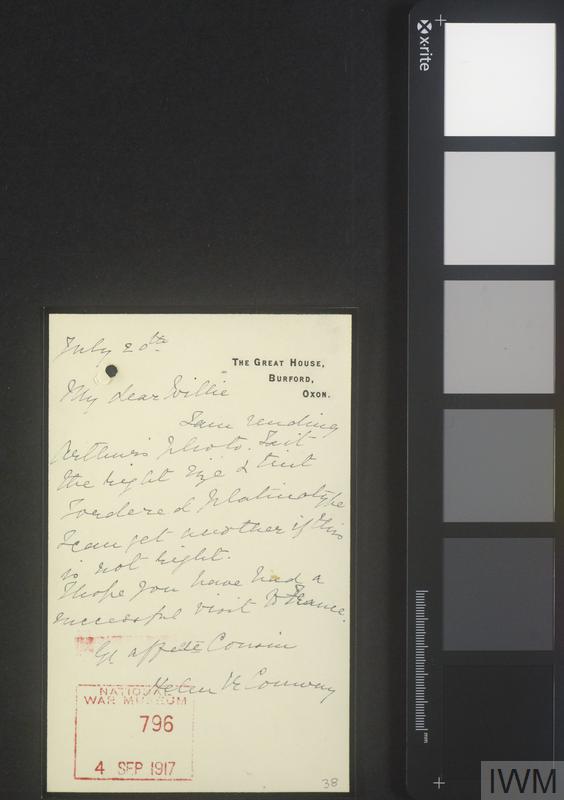 July 20th
THE GREAT HOUSE,
BURFORD,
OXON.
My dear Willie
I am sending
Arthur's photo. Is it
the right size & tint
I ordered platinotype
I can get another if this
is not right.
I hope you have had a
successful visit to France.
Yr affecte Cousin
Helen M Conway
NATIONAL
WAR MUSEUM
796
4 SEP 1917
38
x-rite
mm
IWM